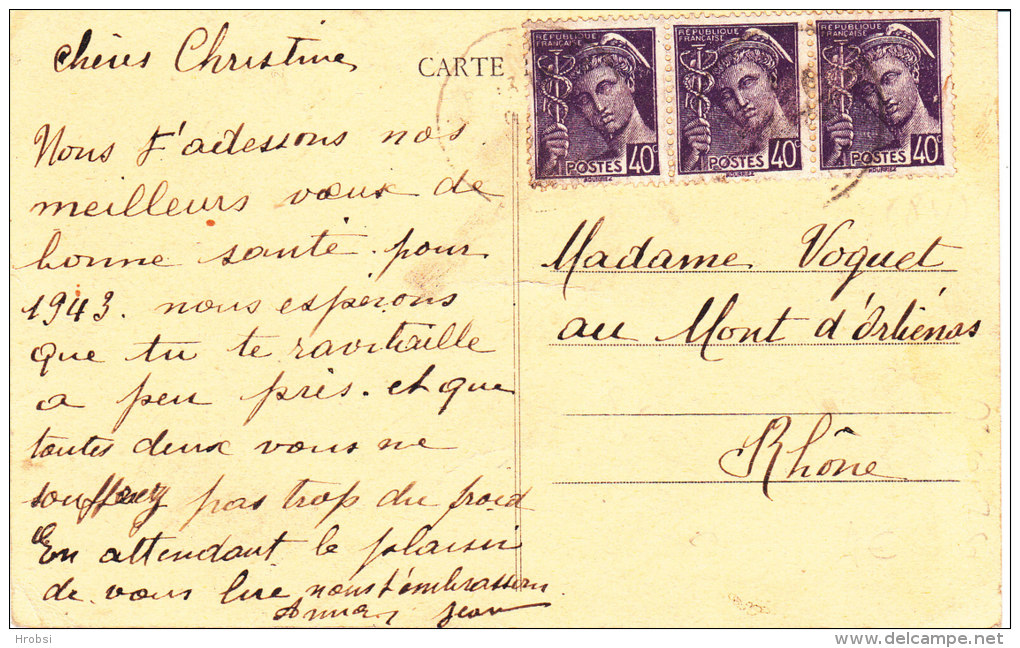 chères Christine
Nous t'adessons nos
meilleurs vœux de
bonne santé pour
1943. nous esperons
que tu te ravitaille
a peu près. et que
toutes deux vous ne
souffrez pas trop du froid
En attendant le plaisir
de vous lire nous t'embrassons
Jean
CARTE
RÉPUBLIQUE
FRANÇAISE
POSTES 40c
RÉPUBLIQUE
FRANÇAISE
POSTES 40c
RÉPUBLIQUE
FRANÇAISE
POSTES 40c
Madame Voquet
au Mont d'Orliénas
Rhône
Hrobsi
www.delcampe.net